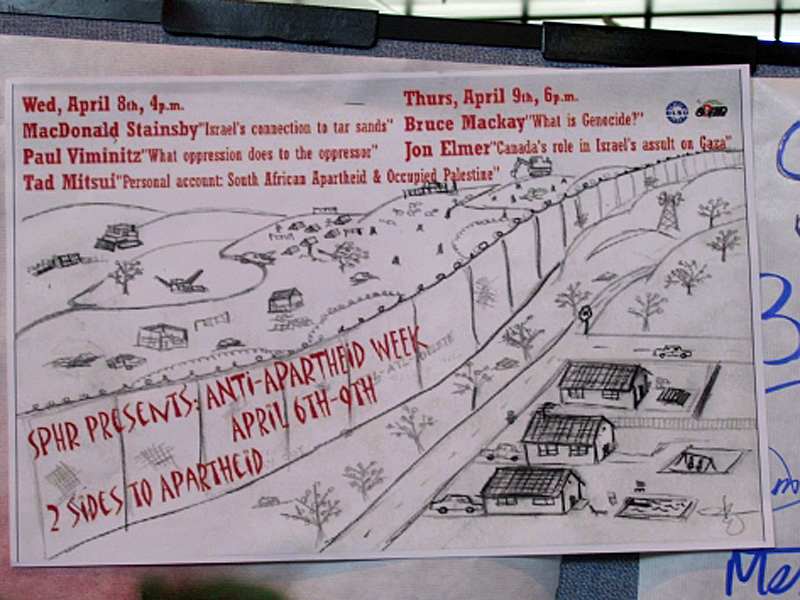 Wed, April 8th, 4p.m.
MacDonald Stainsby "Israel's connection to tar sands"
Paul Viminitz "What oppression does to the oppressor"
Tad Mitsui "Personal account: South African Apartheid & Occupied Palestine"
Thurs, April 9th, 6p.m.
Bruce Mackay "What is Genocide?"
Jon Elmer "Canada's role in Israel's assult on Gaza"
SPHR PRESENTS: ANTI-APARTHEID WEEK
APRIL 6TH-9TH
2 SIDES TO APARTHEID
3
Me